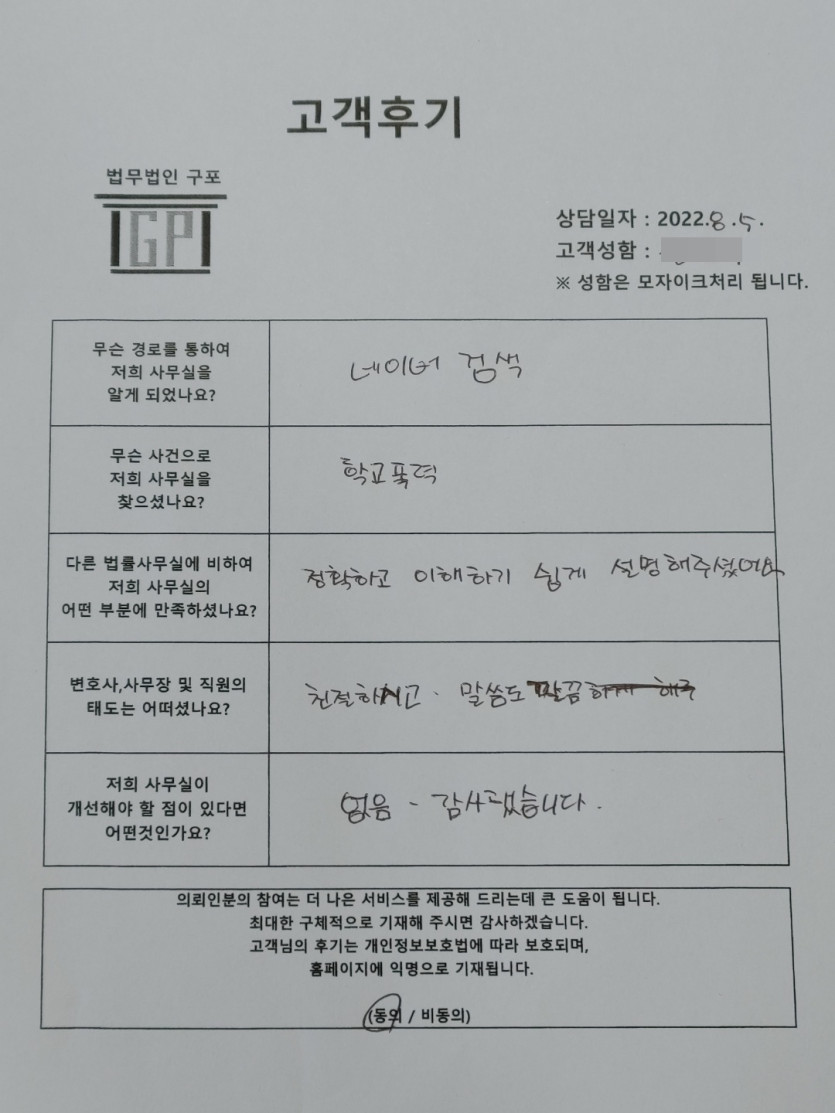 고객후기
법무법인 구포
GP
상담일자 : 2022.8.5.
고객성함 :
※ 성함은 모자이크처리 됩니다.
무슨 경로를 통하여
저희 사무실을
알게 되었나요?
네이버 검색
무슨 사건으로
저희 사무실을
찾으셨나요?
학교폭력
다른 법률사무실에 비하여
저희 사무실의
어떤 부분에 만족하셨나요?
정확하고 이해하기 쉽게 설명해주셨어요
변호사,사무장 및 직원의
태도는 어떠셨나요?
친절하시고. 말씀도 깔끔
저희 사무실이
개선해야 할 점이 있다면
어떤것인가요?
없음 - 감사했습니다.
의뢰인분의 참여는 더 나은 서비스를 제공해 드리는데 큰 도움이 됩니다.
최대한 구체적으로 기재해 주시면 감사하겠습니다.
고객님의 후기는 개인정보보호법에 따라 보호되며,
홈페이지에 익명으로 기재됩니다.
(동의 / 비동의)